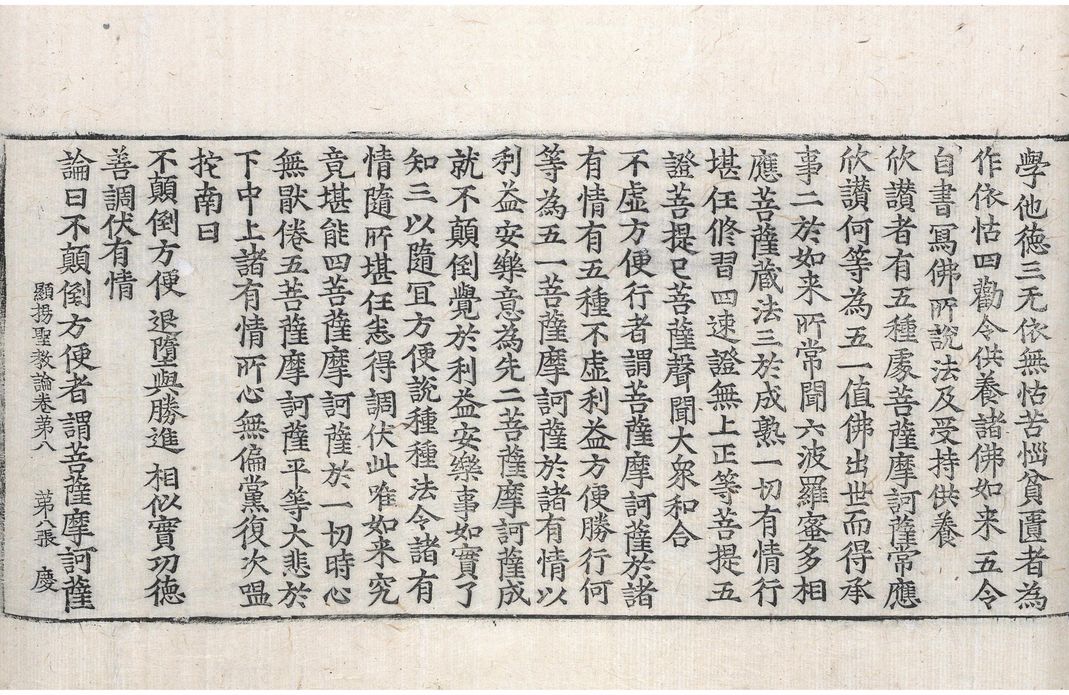 學他德三无依無怙苦惱貧匱者為
作依怙四勸令供養諸佛如来五令
自書寫佛所說法及受持供養
欣讃者有五種處菩薩摩訶薩常應
欣讃何等為五一值佛出世而得承
事二於如来所常聞六波羅蜜多相
應菩薩蔵法三於成熟一切有情行
堪任修習四速證無上正等菩提五
證菩提已菩薩聲聞大衆和合
不虛方便行者謂菩薩摩訶薩於諸
有情有五種不虛利益方便勝行何
等為五一菩薩摩訶薩於諸有情以
利益安樂意為先二菩薩摩訶薩成
就不顛倒覺於利益安樂事如實了
知三以隨冝方便說種種法令諸有
情隨所堪任悉得調伏此唯如来究
竟堪能四菩薩摩訶薩於一切時心
無猒倦五菩薩摩訶薩平等大悲於
下中上諸有情所心無偏黨復次嗢
拕南曰
不顛倒方便 退墮與勝進 相似實功德
善調伏有情
論曰不顛倒方便者謂菩薩摩訶薩
顯揚聖教論卷第八 第八張 慶